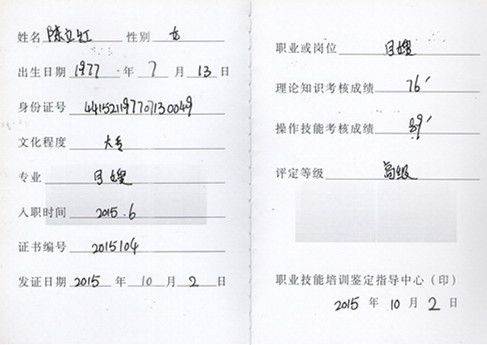 姓名 陈立虹 性别 女
出生日期 1977 年 7 月 13 日
身份证号 441521197707130049
文化程度 大专
专业 月嫂
入职时间 2015.6
证书编号 2015104
发证日期 2015 年 10 月 2 日
职业或岗位 月嫂
理论知识考核成绩 76'
操作技能考核成绩 89'
评定等级 高级
职业技能培训鉴定指导中心（印）
2015 年 10 月 2 日